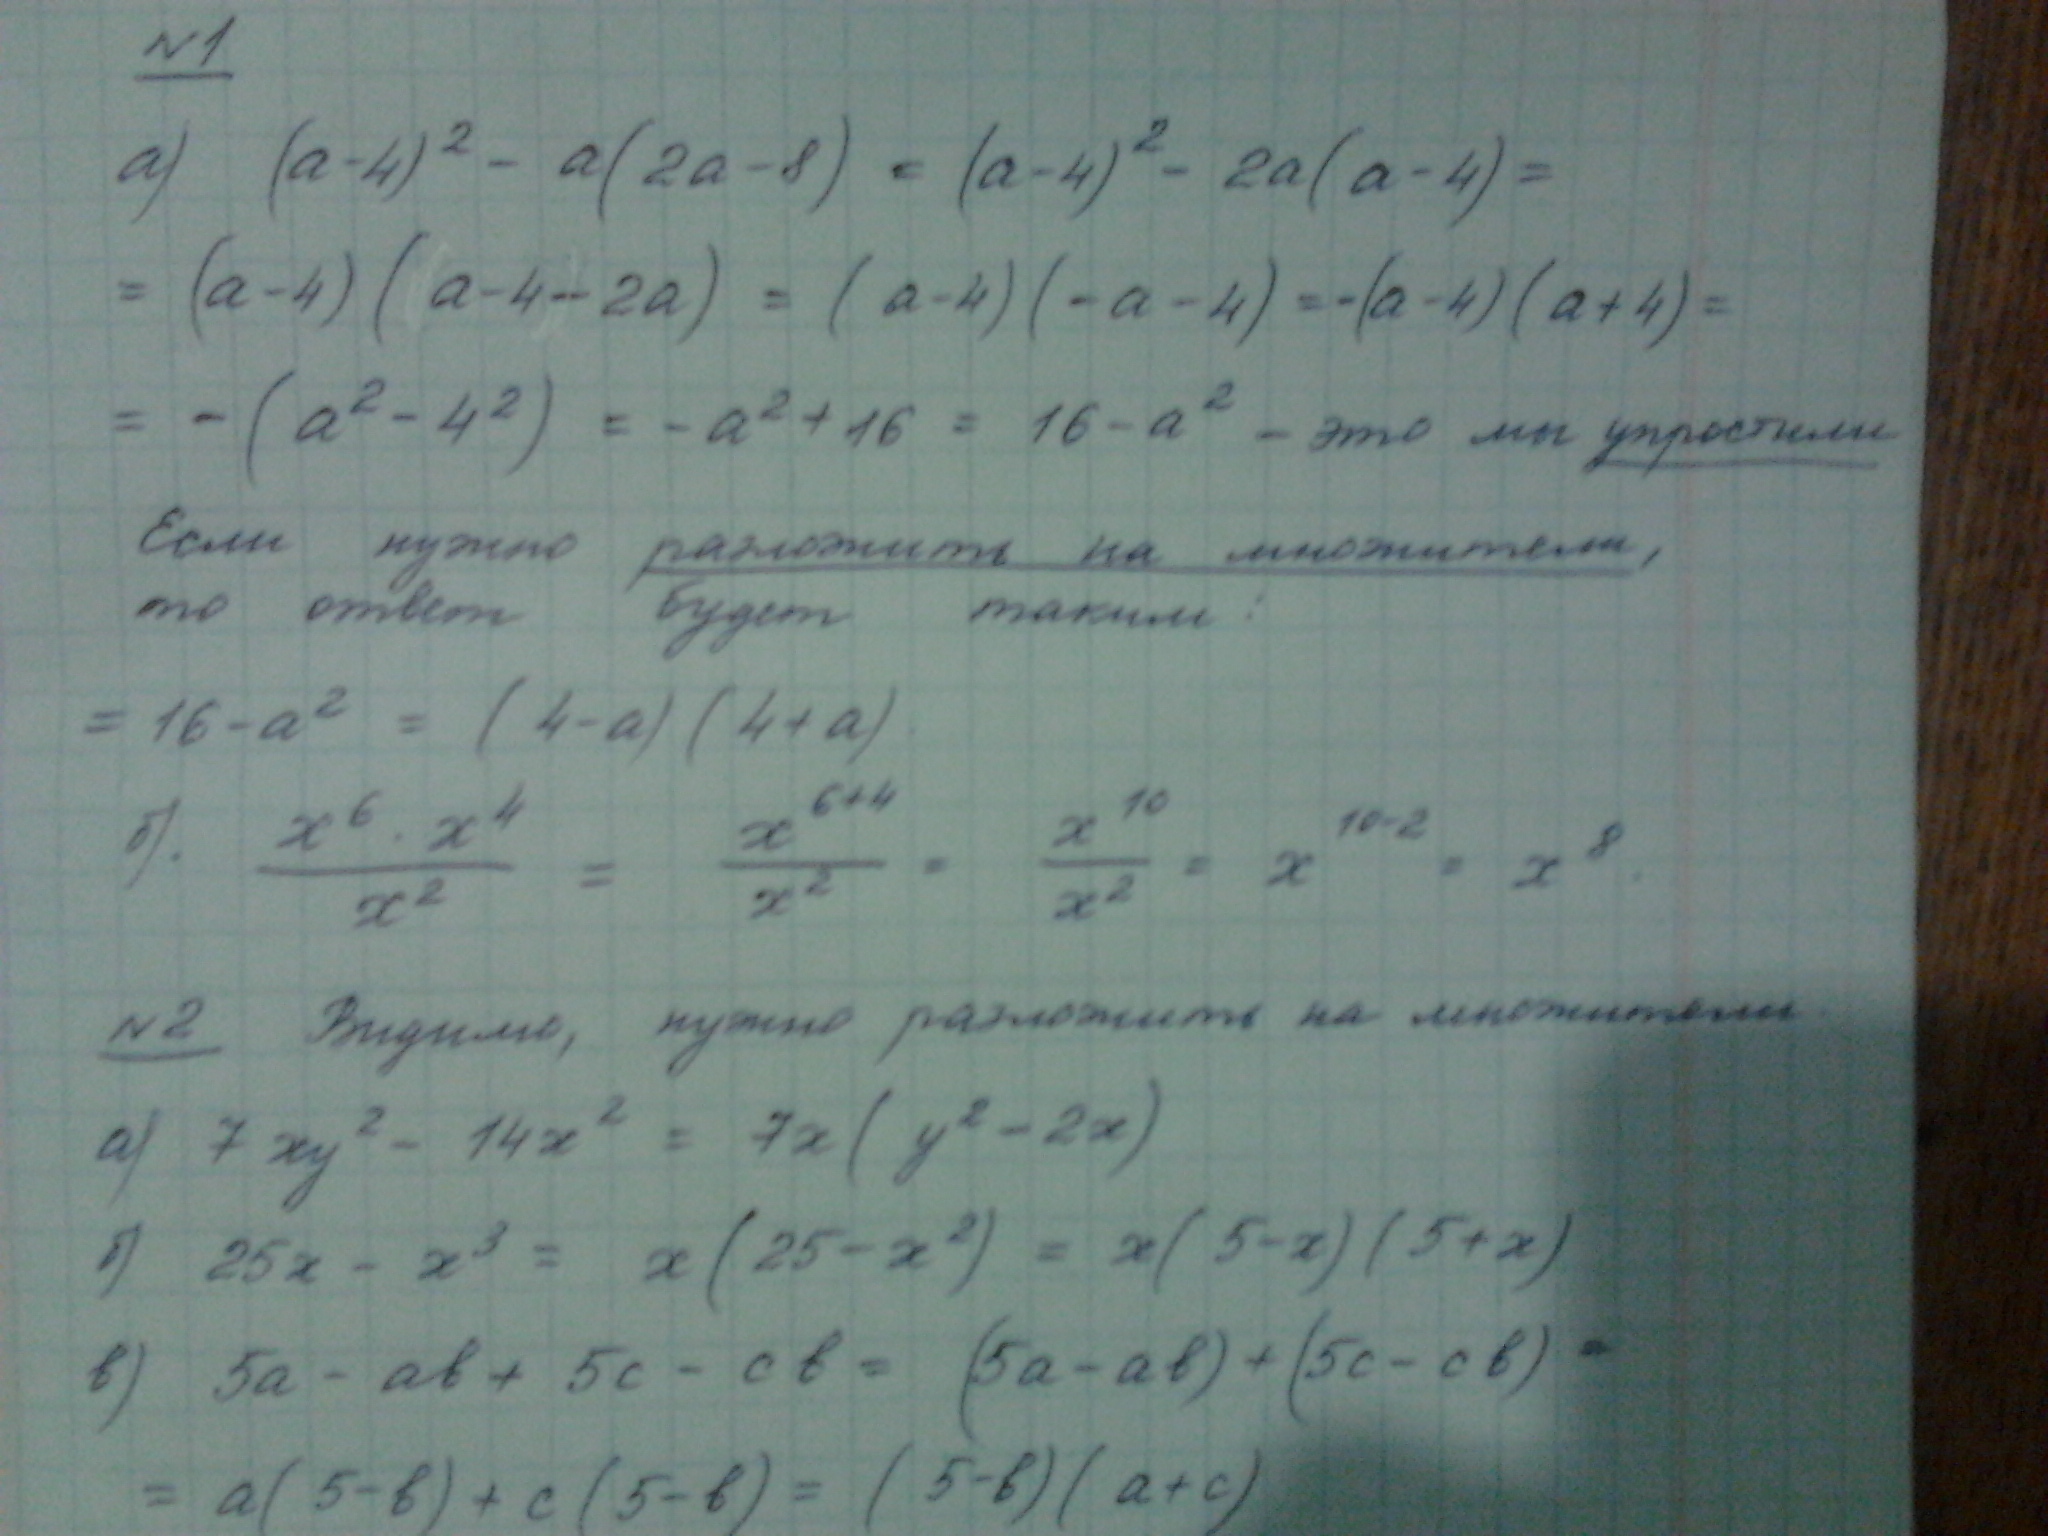 №1
а) (a-4)² - a(2a-8) = (a-4)² - 2a(a-4) =
= (a-4)(a-4-2a) = (a-4)(-a-4) = -(a-4)(a+4) =
= -(a²-4²) = -a²+16 = 16-a² - это мы упростили
Если нужно разложить на множители,
то ответ будет таким:
= 16-a² = (4-a)(4+a).
б). x⁶·x⁴/x² = x⁶⁺⁴/x² = x¹⁰/x² = x¹⁰⁻² = x⁸.
№2 Видимо, нужно разложить на множители.
а) 7xy² - 14x² = 7x(y²-2x)
б) 25x - x³ = x(25-x²) = x(5-x)(5+x)
в) 5a - ab + 5c - cb = (5a-ab)+(5c-cb) =
= a(5-b)+c(5-b) = (5-b)(a+c)